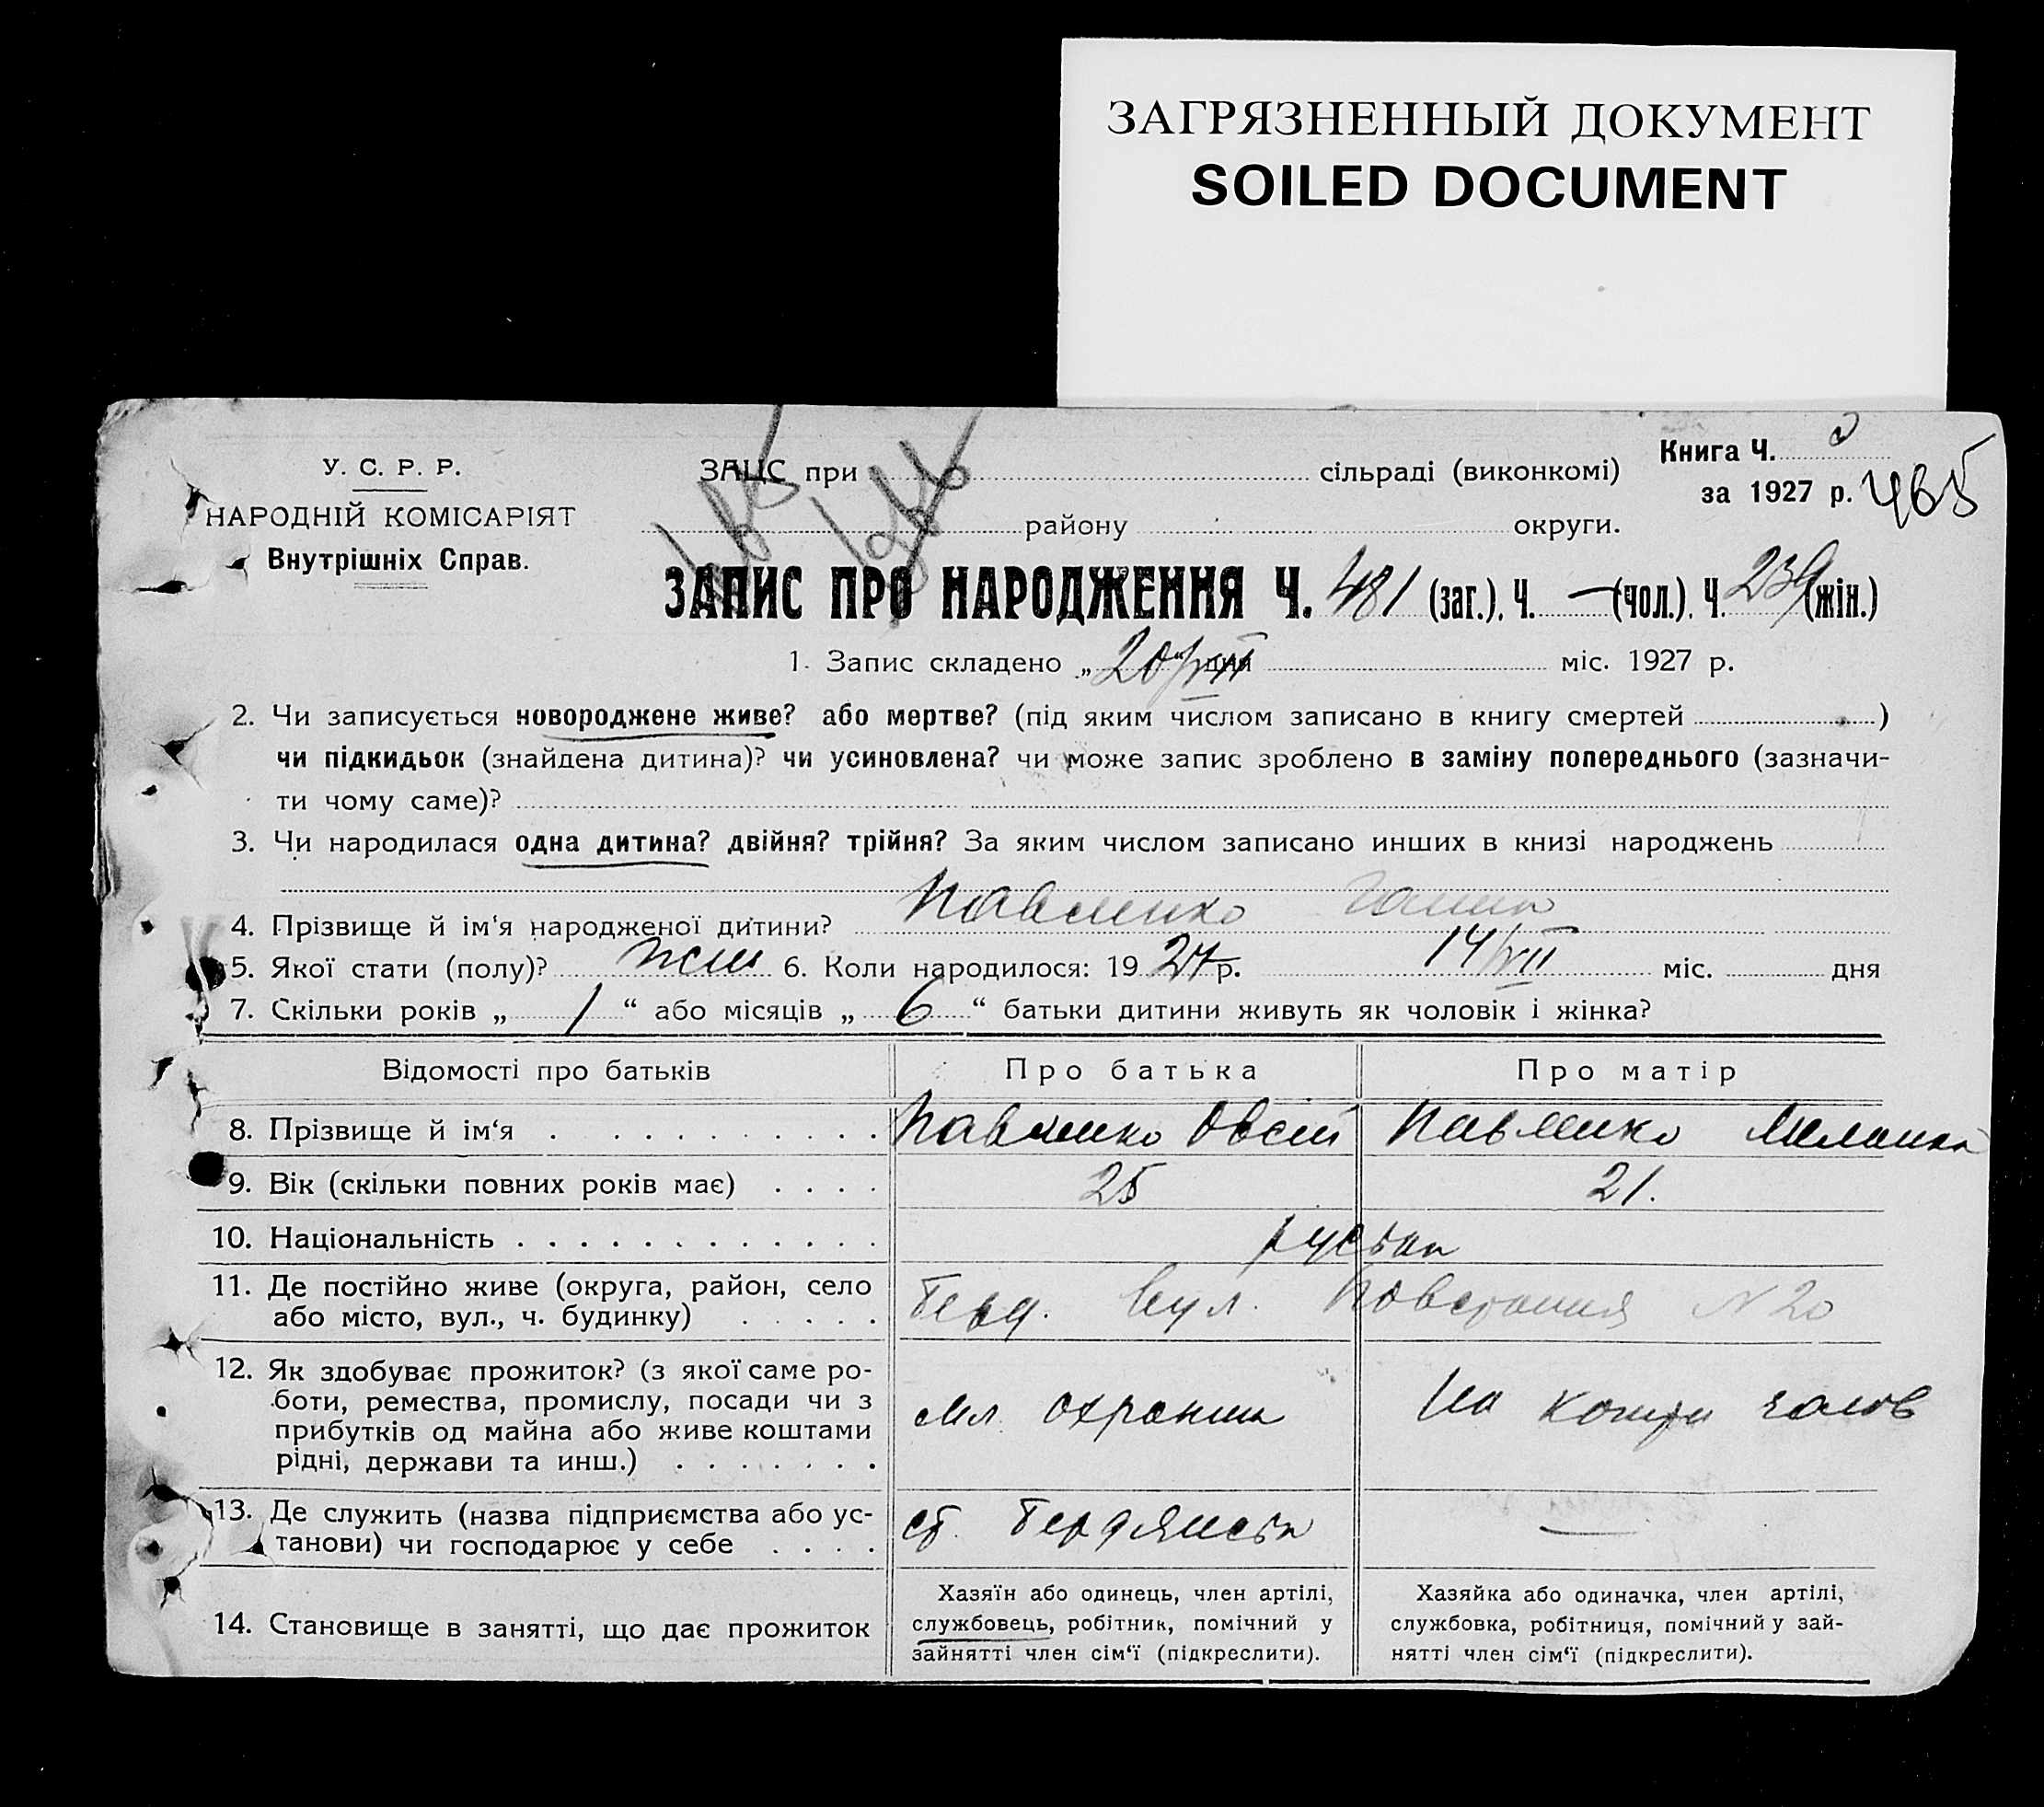 ЗАГРЯЗНЕННЫЙ ДОКУМЕНТ
SOILED DOCUMENT
У. С. Р. Р.
НАРОДНІЙ КОМІСАРІЯТ
Внутрішніх Справ.
ЗАЦС при сільраді (виконкомі)
району округи.
Книга Ч.
за 1927 р. 465
ЗАПИС ПРО НАРОДЖЕННЯ Ч. 481 (заг.), Ч. — (чол.), Ч. 239 (жін.)
1. Запис складено „20/VIII“ дня міс. 1927 р.
2. Чи записується новороджене живе? або мертве? (під яким числом записано в книгу смертей )
чи підкидьок (знайдена дитина)? чи усиновлена? чи може запис зроблено в заміну попереднього (зазначи-
ти чому саме)?
3. Чи народилася одна дитина? двійня? трійня? За яким числом записано инших в книзі народжень
4. Прізвище й ім‘я народженої дитини? Павленко Галина
5. Якої стати (полу)? жін 6. Коли народилося: 1927 р. 14/VII міс. дня
7. Скільки років „ 1 “ або місяців „ 6 “ батьки дитини живуть як чоловік і жінка?
Відомості про батьків Про батька Про матір
8. Прізвище й ім‘я Павленко Овсій Павленко Меланка
9. Вік (скільки повних років має) 25 21.
10. Національність руськи
11. Де постійно живе (округа, район, село
або місто, вул., ч. будинку)
Берд. вул. Повстання N 20
12. Як здобуває прожиток? (з якої саме ро-
боти, ремества, промислу, посади чи з
прибутків од майна або живе коштами
рідні, держави та инш.)
мл. охранник
На кошти чолов
13. Де служить (назва підприємства або ус-
танови) чи господарює у себе
ст. Бердянськ
—
14. Становище в занятті, що дає прожиток
Хазяїн або одинець, член артілі,
службовець, робітник, помічний у
зайнятті член сім‘ї (підкреслити).
Хазяйка або одиначка, член артілі,
службовка, робітниця, помічний у зай-
нятті член сім‘ї (підкреслити).